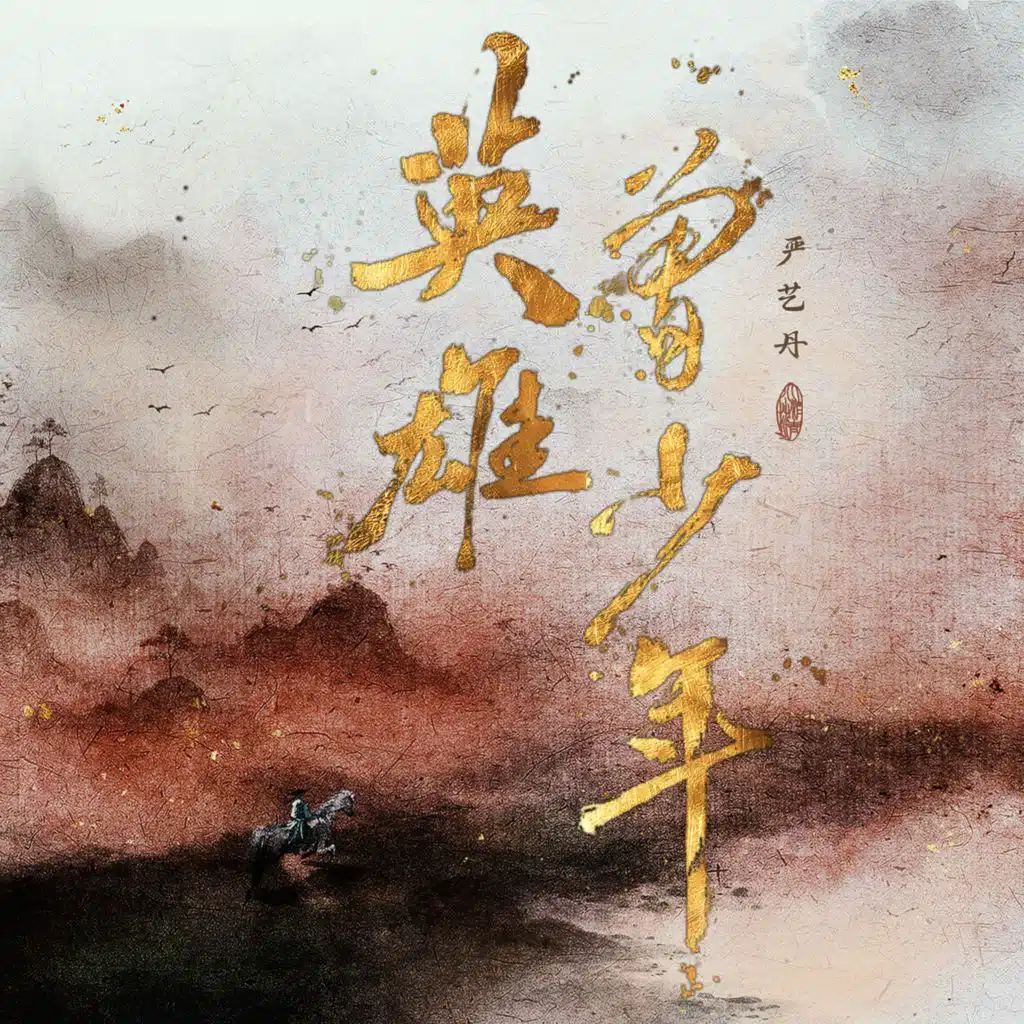 英雄
曾少年
严艺丹